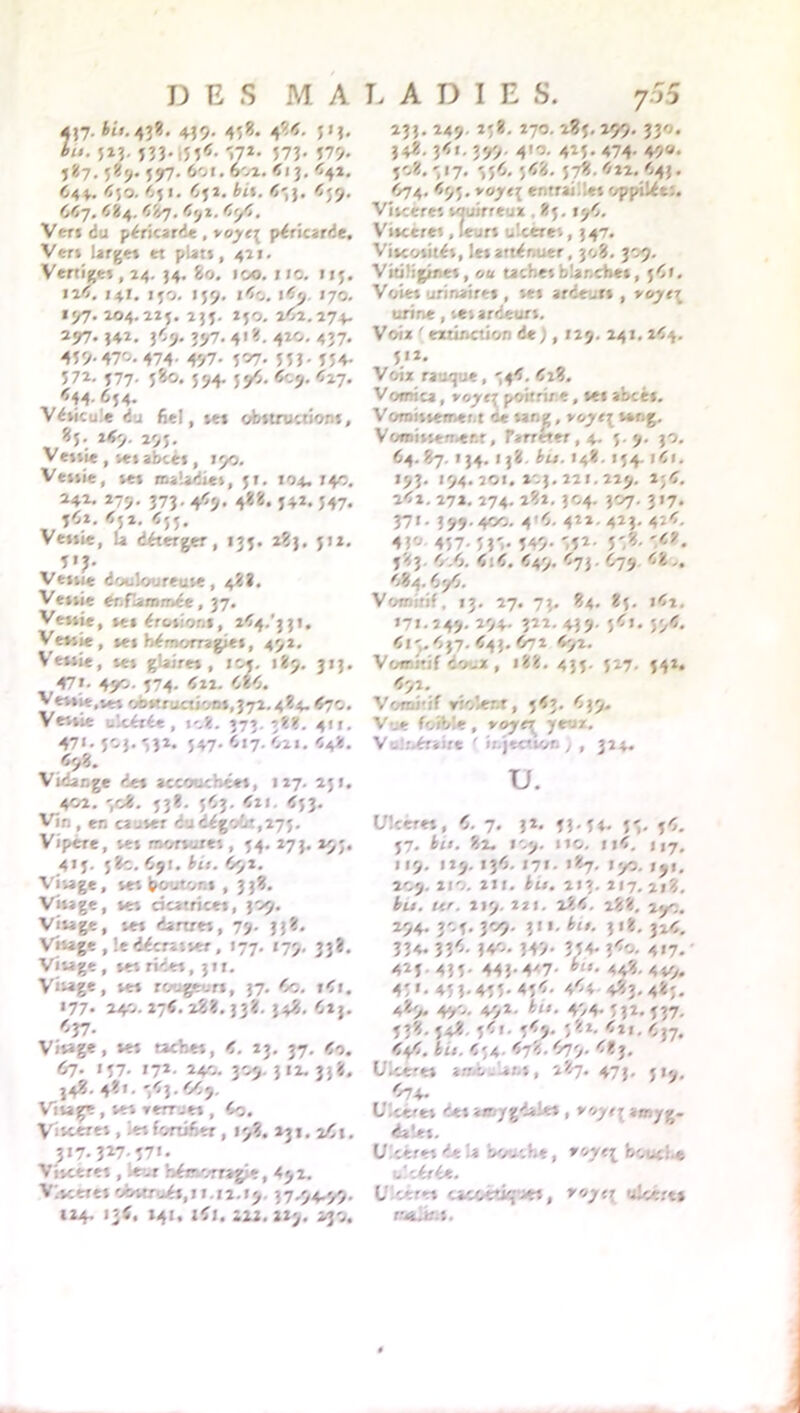 DES MALADIES. 755
437. bis. 438. 439. 458. 486. 513.
bis. 523. 533. 556. 572. 573. 579.
587. 589. 597. 601. 602. 613. 642.
644. 650. 651. 652. bis. 653. 659.
667. 684. 687. 692. 696.
Vers du péricarde, voyez péricarde.
Vers larges et plats, 421.
Vertiges, 24. 34. 80. 100. 110. 115.
126. 141. 150. 159. 160. 169. 170.
197. 204. 225. 235. 250. 262. 274.
297. 342. 369. 397. 418. 420. 437.
459. 470. 474. 497. 507. 553. 554.
572. 577. 580. 594. 596. 609. 627.
644. 654.
Vésicule du fiel, ses obstructions,
85. 269. 295.
Vessie, ses abcès, 190.
Vessie, ses maladies, 51. 104. 140.
242. 279. 373. 469. 488. 542. 547.
562. 652. 655.
Vessie, la déterger, 135. 283. 512.
513.
Vessie douloureuse, 488.
Vessie enflammée, 37.
Vessie, ses érosions, 264. 331.
Vessie, ses hémorragies, 492.
Vessie, ses glaires, 105. 189. 313.
471. 490. 574. 622. 686.
Vessie, ses obstructions, 372. 484. 670.
Vessie ulcérée, 108. 373. 388. 411.
471. 503. 532. 547. 617. 621. 648.
698.
Vidange des accouchées, 127. 251.
402. 508. 538. 563. 621. 653.
Vin, en causer du dégoût, 275.
Vipère, ses morsures, 54. 273. 295.
415. 580. 691. bis. 692.
Visage, ses boutons, 338.
Visage, ses cicatrices, 309.
Visage, ses dartres, 79. 338.
Visage, le décrasser, 177. 179. 338.
Visage, ses rides, 311.
Visage, ses rougeurs, 37. 60. 161.
177. 240. 276. 288. 338. 348. 623.
637.
Visage, ses taches, 6. 23. 37. 60.
67. 157. 172. 240. 309. 312. 338.
348. 481. 563. 669.
Visage, ses verrues, 60.
Viscères, les fortifier, 198. 231. 261.
317. 327. 571.
Viscères, leur hémorragie, 492.
Viscères obstrués, 11. 12. 19. 37. 94. 99.
124. 136. 141. 161. 222. 229. 230.
233. 249. 258. 270. 285. 299. 330.
348. 361. 399. 410. 425. 474. 490.
508. 517. 556. 568. 578. 622. 643.
674. 695. voyez entrailles oppilées.
Viscères squirreux, 85. 196.
Viscères, leurs ulcères, 347.
Viscosités, les atténuer, 308. 309.
Vitiligines, ou taches blanches, 561.
Voies urinaires, ses ardeurs, voyez
urine, ses ardeurs.
Voix (extinction de), 129. 241. 264.
512.
Voix rauque, 546. 628.
Vomica, voyez poitrine, ses abcès.
Vomissement de sang, voyez sang.
Vomissement, l'arrêter, 4. 5. 9. 30.
64. 87. 134. 138. bis. 148. 154. 161.
193. 194. 201. 203. 221. 229. 256.
262. 272. 274. 282. 304. 307. 317.
371. 399. 400. 416. 422. 423. 426.
430. 457. 535. 549. 552. 558. 568.
583. 606. 616. 649. 673. 679. 680.
684. 696.
Vomitif, 13. 27. 73. 84. 85. 162.
171. 249. 294. 322. 439. 561. 596.
615. 637. 643. 672. 692.
Vomitif doux, 188. 435. 527. 542.
692.
Vomitif violent, 563. 639.
Vue foible, voyez yeux.
Vulnéraire (injection), 324.
U.
Ulcères, 6. 7. 32. 53. 54. 55. 56.
57. bis. 82. 109. 110. 116. 117.
119. 129. 136. 171. 187. 190. 191.
209. 210. 211. bis. 213. 217. 218.
bis. ter. 219. 221. 286. 288. 290.
294. 305. 309. 311. bis. 318. 326.
334. 336. 340. 349. 354. 360. 417.
425. 435. 443. 447. bis. 448. 449.
451. 453. 455. 456. 464. 483. 485.
489. 490. 492. bis. 494. 532. 537.
538. 548. 561. 569. 582. 621. 637.
646. bis. 654. 678. 679. 683.
Ulcères ambulans, 287. 473. 519.
674.
Ulcères des amygdales, voyez amyg-
dales.
Ulcères de la bouche, voyez bouche
ulcérée.
Ulcères cacoëtiques, voyez ulcères
malins.